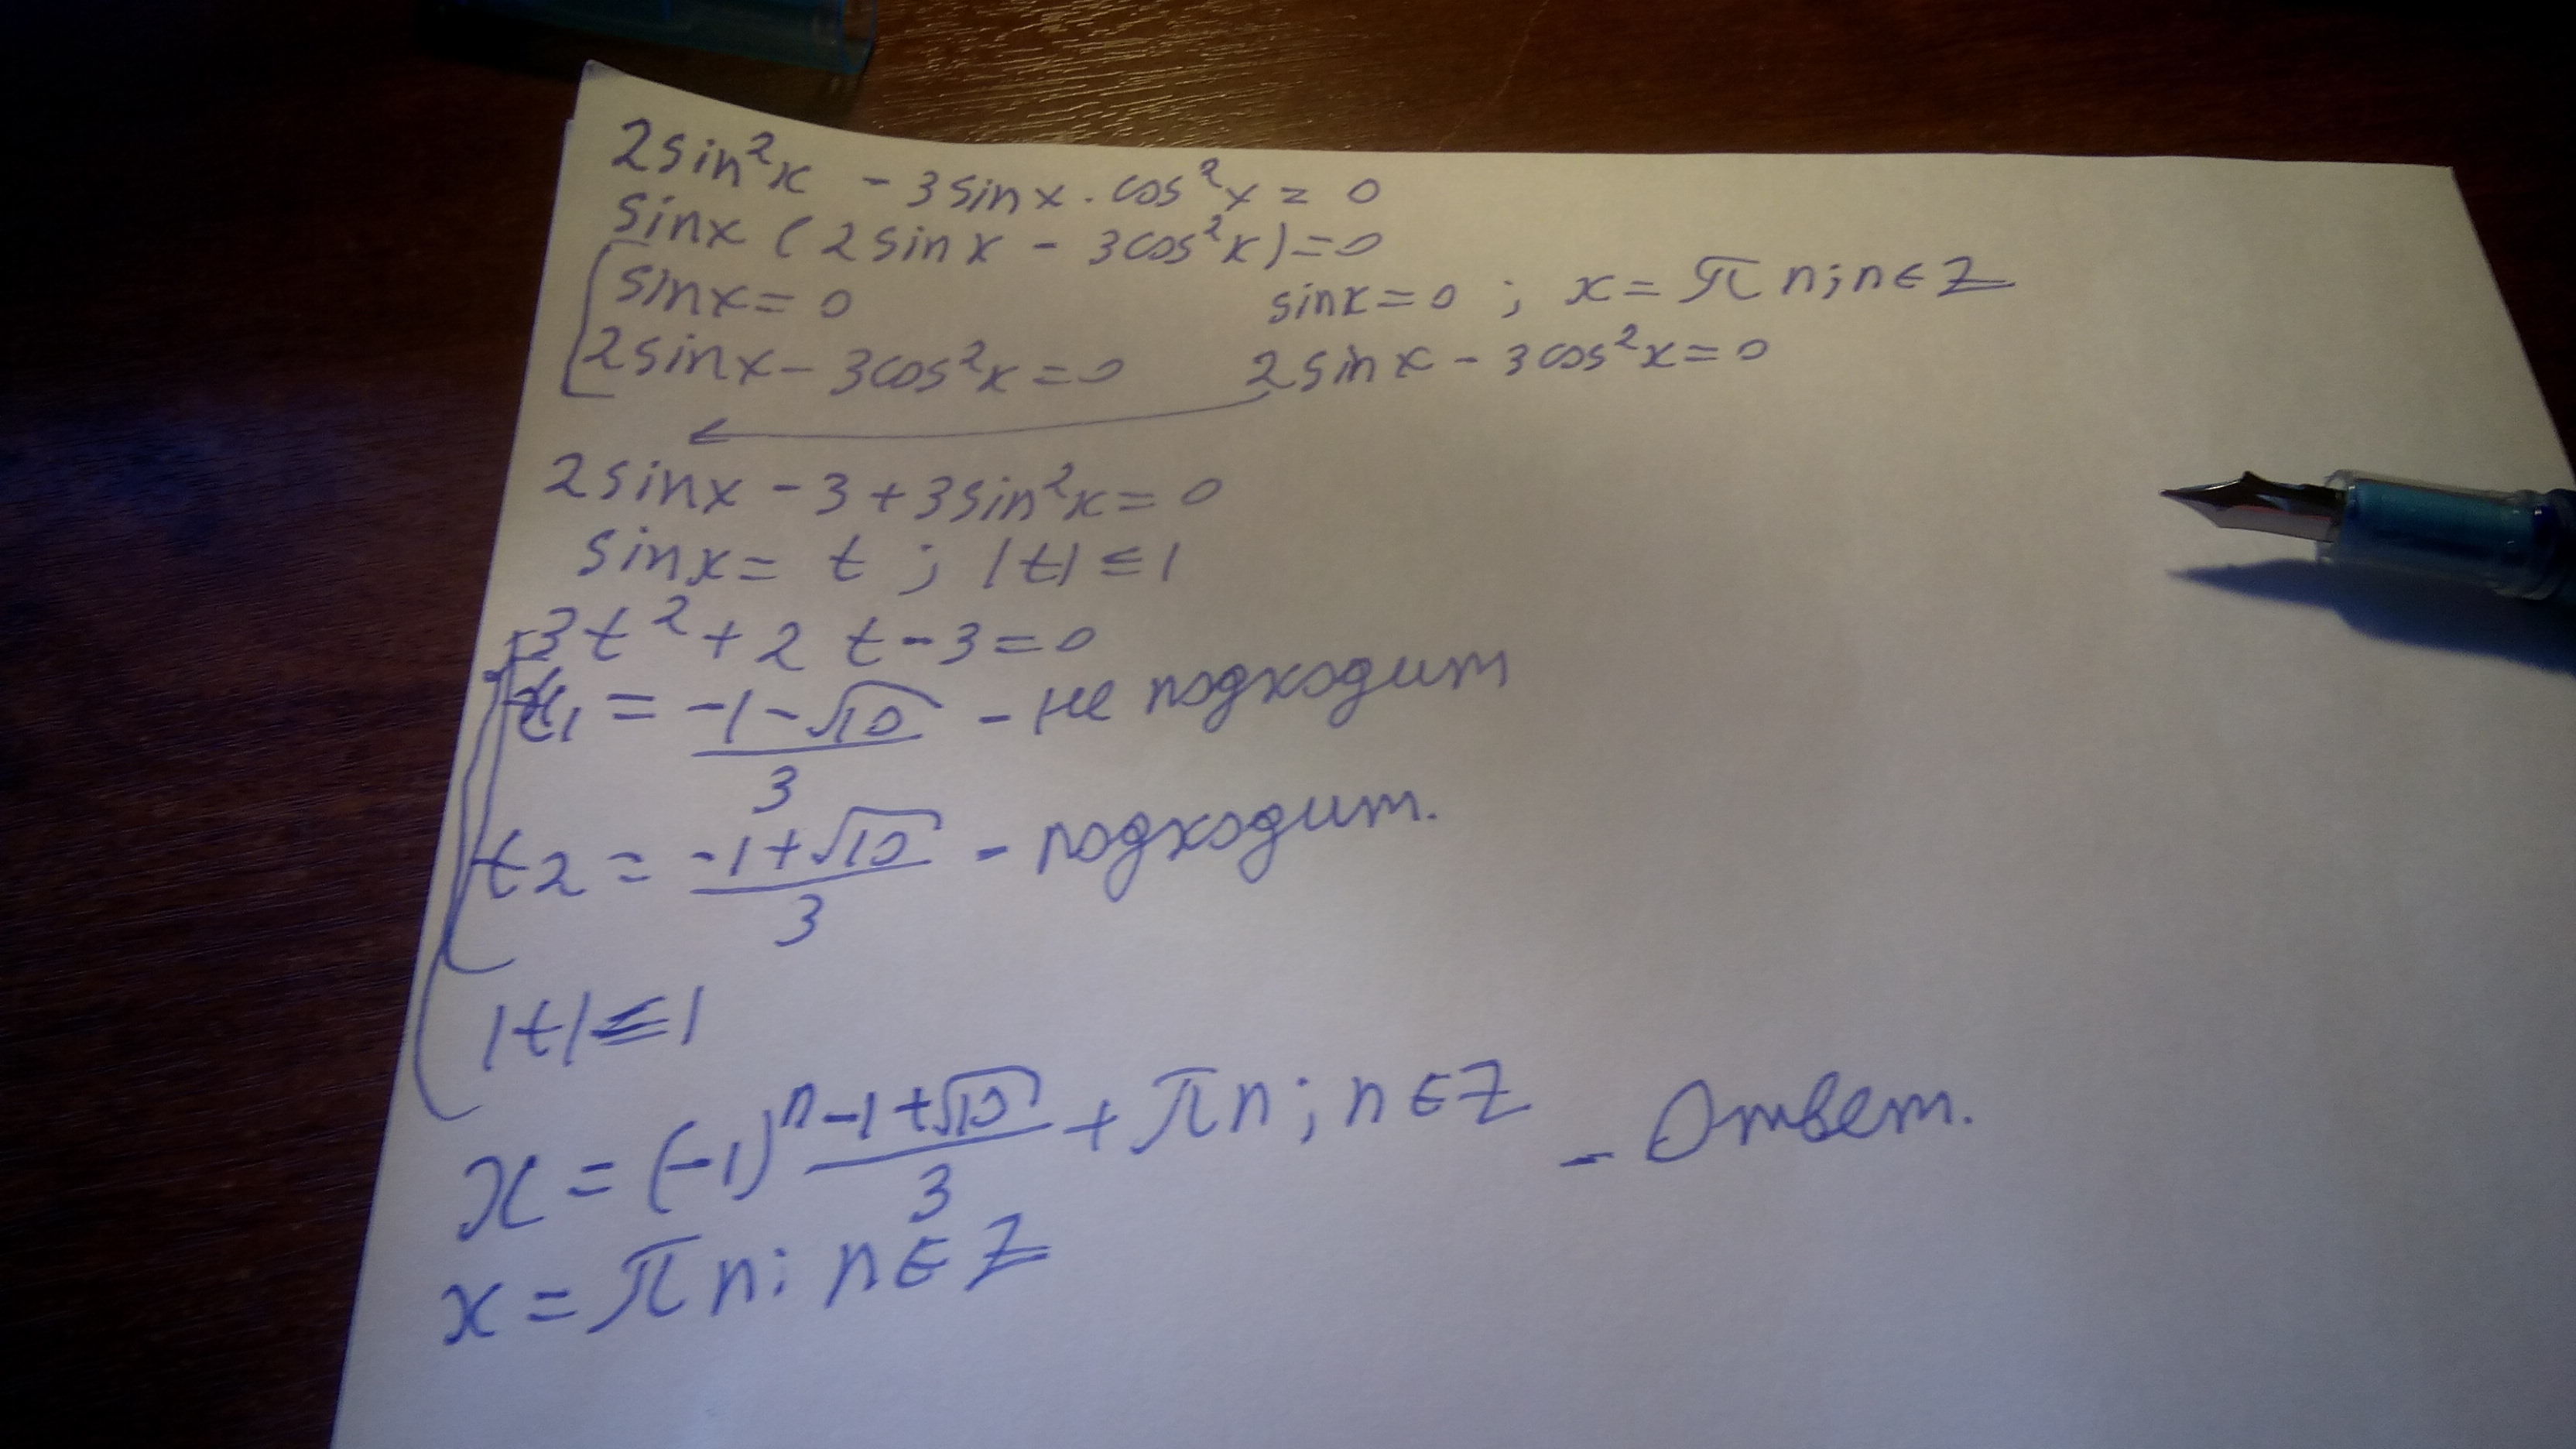 2sin²x - 3sinx · cos²x = 0
sinx (2sinx - 3cos²x) = 0
sinx = 0
2sinx - 3cos²x = 0
sinx = 0 ; x = πn; n ∈ Z
2sinx - 3cos²x = 0
2sinx - 3 + 3sin²x = 0
sinx = t ; |t| ≤ 1
3t² + 2t - 3 = 0
t₁ = (-1 - √10)/3 - не подходит
t2 = (-1 + √10)/3 - подходит.
|t| ≤ 1
x = (-1)ⁿ (-1 + √10)/3 + πn; n ∈ Z - Ответ.
x = πn; n ∈ Z